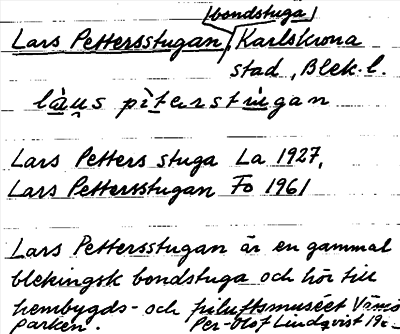 bondstuga
Lars Pettersstugan, Karlskrona
stad, Blek. l.
Lars Petters stuga La 1927,
Lars Pettersstugan Fo 1961
Lars Pettersstugan är en gammal
blekingsk bondstuga och hör till
hembygds- och friluftsmuséet Vämö
parken. Per-Olof Lindqvist